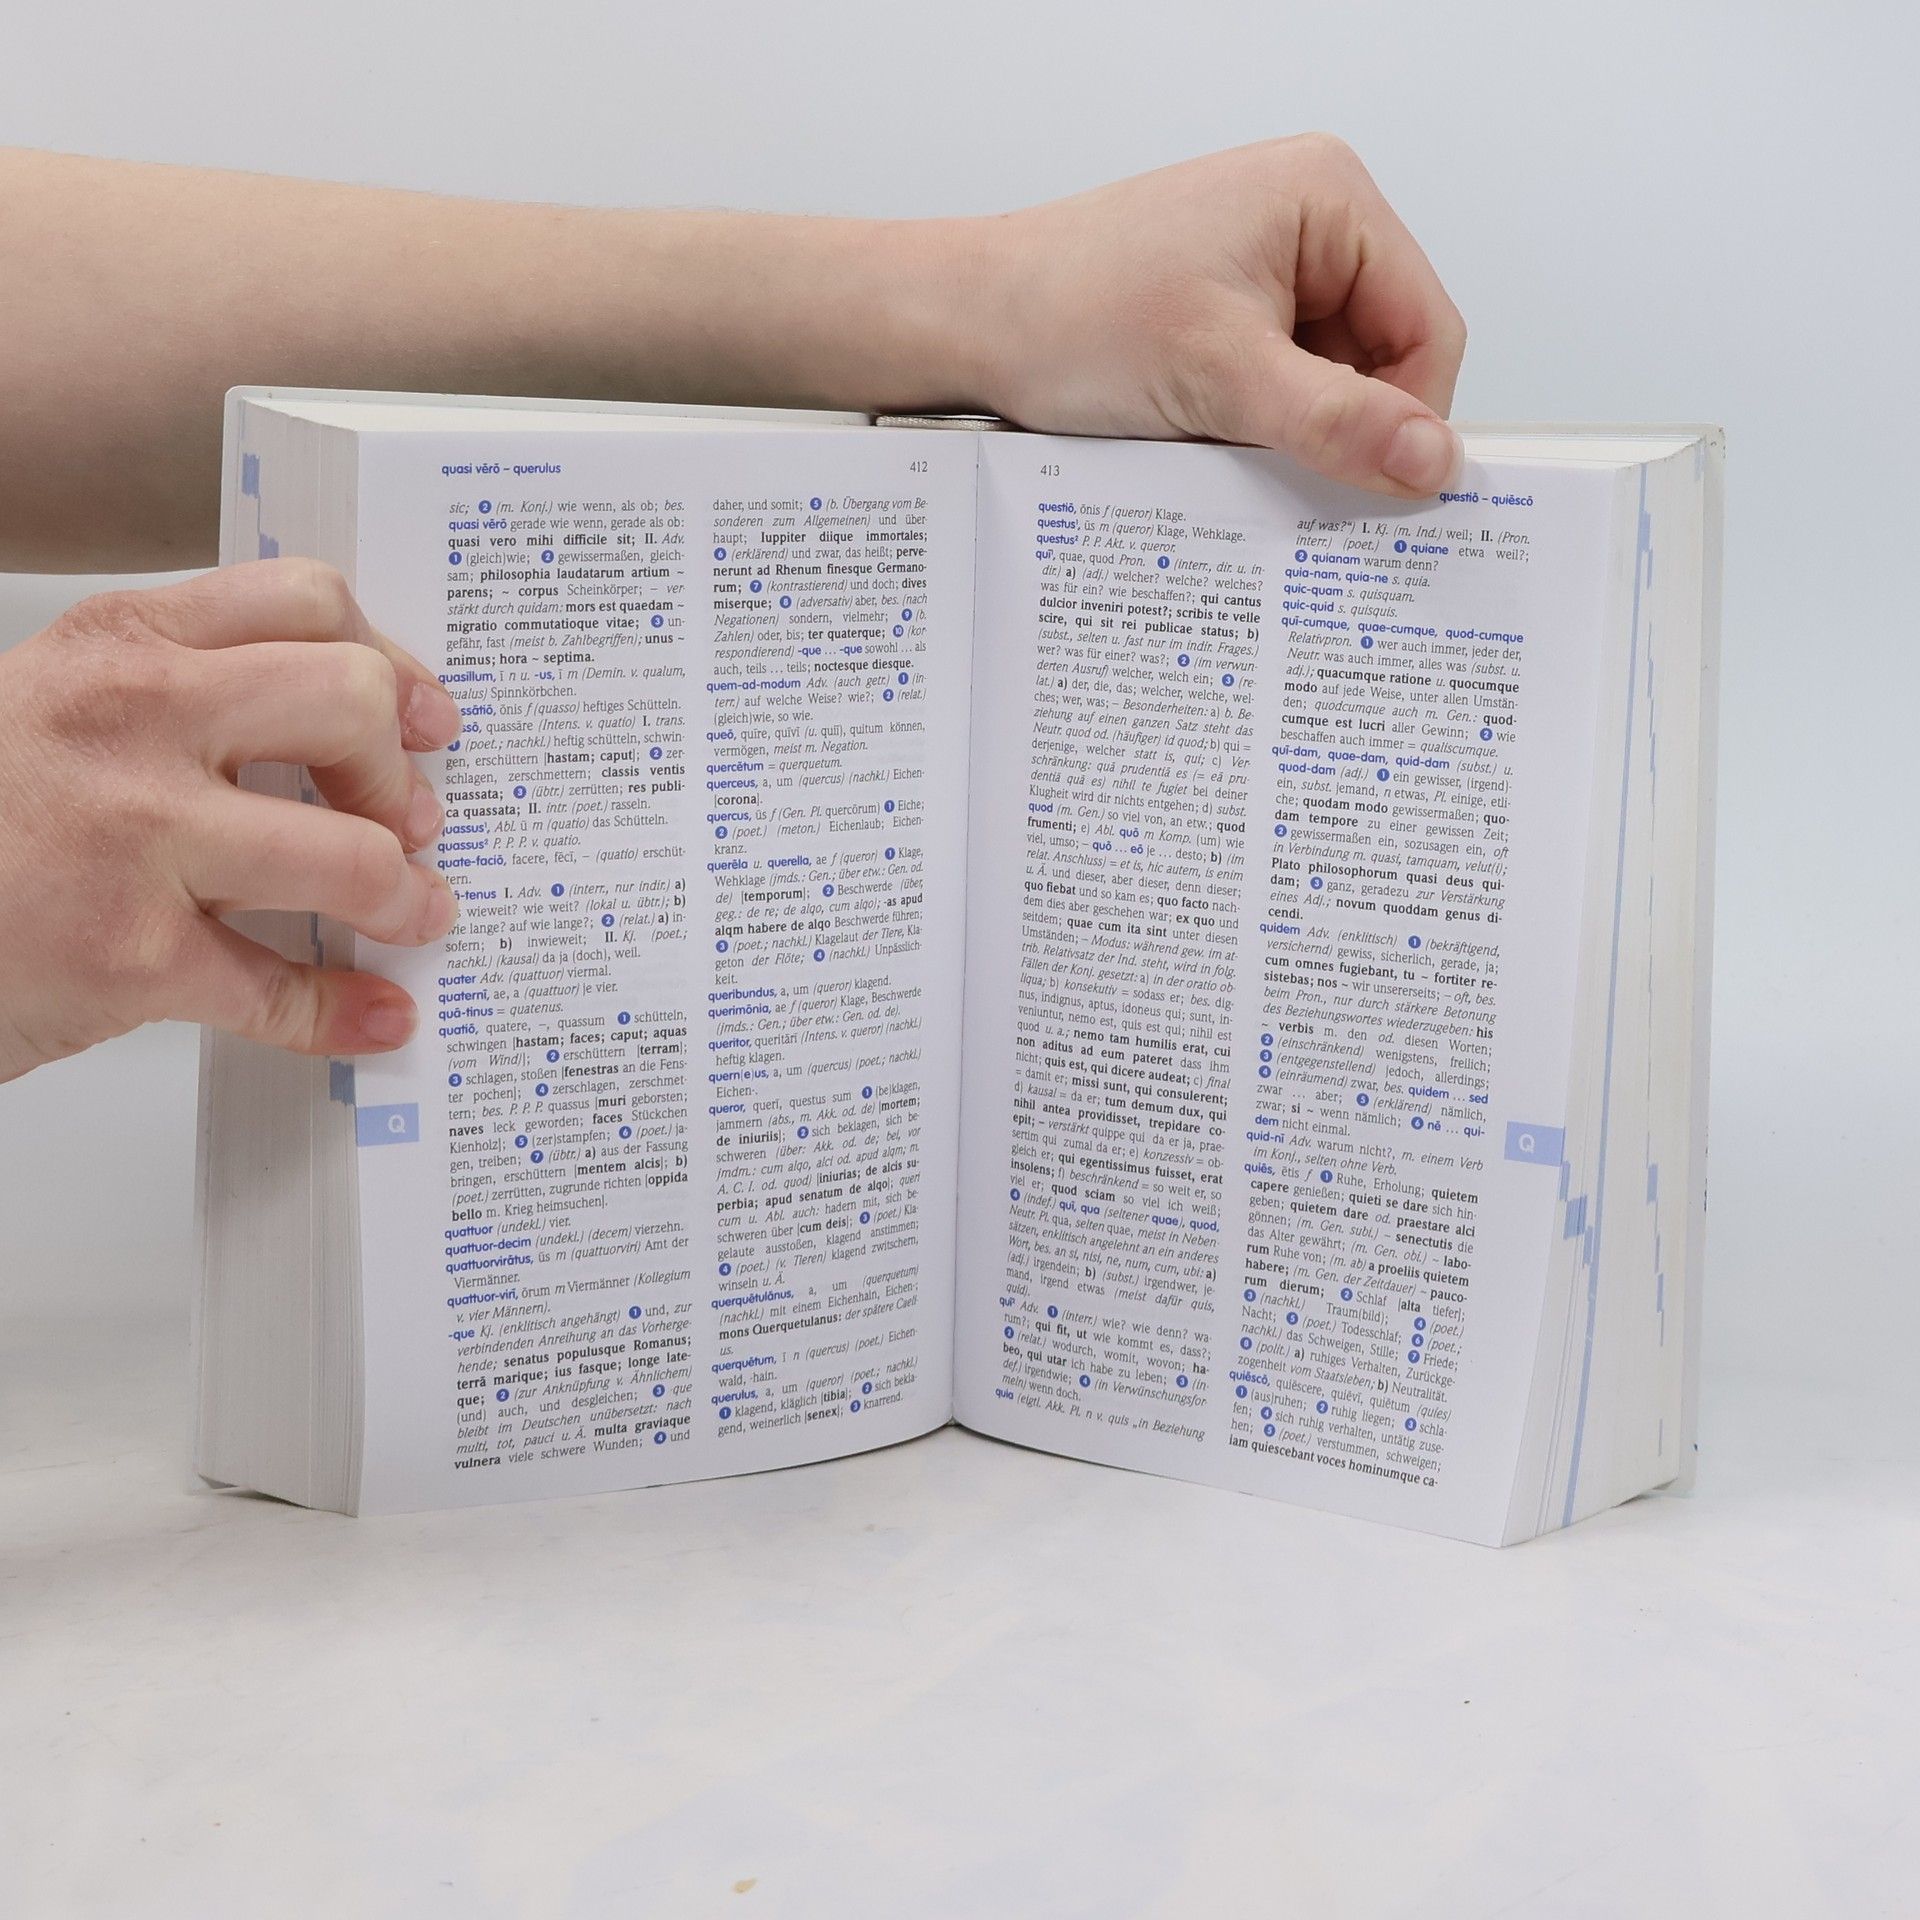 quasi vērō – querulus
412
sic; ❷ (m. Konj.) wie wenn, als ob; bes.
quasi vērō gerade wie wenn, gerade als ob:
quasi vero mihi difficile sit; II. Adv.
❶ (gleich)wie; ❷ gewissermaßen, gleich-
sam; philosophia laudatarum artium ~
parens; ~ corpus Scheinkörper; – ver-
stärkt durch quidam: mors est quaedam ~
migratio commutatioque vitae; ❸ un-
gefähr, fast (meist b. Zahlbegriffen); unus ~
animus; hora ~ septima.
quasillum, ī n u. -us, ī m (Demin. v. qualum,
qualus) Spinnkörbchen.
ssātiō, ōnis f (quasso) heftiges Schütteln.
ssō, quassāre (Intens. v. quatio) I. trans.
❶ (poet.; nachkl.) heftig schütteln, schwin-
gen, erschüttern [hastam; caput]; ❷ zer-
schlagen, zerschmettern; classis ventis
quassata; ❸ (übtr.) zerrütten; res publi-
ca quassata; II. intr. (poet.) rasseln.
quassus¹, Abl. ū m (quatio) das Schütteln.
quassus² P. P. P. v. quatio.
quate-faciō, facere, fēcī, – (quatio) erschüt-
tern.
ā-tenus I. Adv. ❶ (interr., nur indir.) a)
wieweit? wie weit? (lokal u. übtr.); b)
wie lange? auf wie lange?; ❷ (relat.) a) in-
sofern; b) inwieweit; II. Kj. (poet.;
nachkl.) (kausal) da ja (doch), weil.
quater Adv. (quattuor) viermal.
quaternī, ae, a (quattuor) je vier.
quā-tinus = quatenus.
quatiō, quatere, –, quassum ❶ schütteln,
schwingen [hastam; faces; caput; aquas
(vom Wind)]; ❷ erschüttern [terram];
❸ schlagen, stoßen [fenestras an die Fens-
ter pochen]; ❹ zerschlagen, zerschmet-
tern; bes. P. P. P. quassus [muri geborsten;
naves leck geworden; faces Stückchen
Kienholz]; ❺ (zer)stampfen; ❻ (poet.) ja-
gen, treiben; ❼ (übtr.) a) aus der Fassung
bringen, erschüttern [mentem alcis]; b)
(poet.) zerrütten, zugrunde richten [oppida
bello m. Krieg heimsuchen].
quattuor (undekl.) vier.
quattuor-decim (undekl.) (decem) vierzehn.
quattuorvirātus, ūs m (quattuorviri) Amt der
Viermänner.
quattuor-virī, ōrum m Viermänner (Kollegium
v. vier Männern).
-que Kj. (enklitisch angehängt) ❶ und, zur
verbindenden Anreihung an das Vorherge-
hende; senatus populusque Romanus;
terrā marique; ius fasque; longe late-
que; ❷ (zur Anknüpfung v. Ähnlichem)
(und) auch, und desgleichen; ❸ -que
bleibt im Deutschen unübersetzt: nach
multi, tot, pauci u. Ä. multa graviaque
vulnera viele schwere Wunden; ❹ und
Q
daher, und somit; ❺ (b. Übergang vom Be-
sonderen zum Allgemeinen) und über-
haupt; Iuppiter diique immortales;
❻ (erklärend) und zwar, das heißt; perve-
nerunt ad Rhenum finesque Germano-
rum; ❼ (kontrastierend) und doch; dives
miserque; ❽ (adversativ) aber, bes. (nach
Negationen) sondern, vielmehr; ❾ (b.
Zahlen) oder, bis; ter quaterque; ❿ (kor-
respondierend) -que ... -que sowohl ... als
auch, teils ... teils; noctesque diesque.
quem-ad-modum Adv. (auch getr.) ❶ (in-
terr.) auf welche Weise? wie?; ❷ (relat.)
(gleich)wie, so wie.
queō, quīre, quīvī (u. quiī), quitum können,
vermögen, meist m. Negation.
quercētum = querquetum.
querceus, a, um (quercus) (nachkl.) Eichen-
[corona].
quercus, ūs f (Gen. Pl. quercōrum) ❶ Eiche;
❷ (poet.) (meton.) Eichenlaub; Eichen-
kranz.
querēla u. querella, ae f (queror) ❶ Klage,
Wehklage (jmds.: Gen.; über etw.: Gen. od.
de) [temporum]; ❷ Beschwerde (über,
geg.: de re; de alqo, cum alqo); -as apud
alqm habere de alqo Beschwerde führen;
❸ (poet.; nachkl.) Klagelaut der Tiere, Kla-
geton der Flöte; ❹ (nachkl.) Unpässlich-
keit.
queribundus, a, um (queror) klagend.
querimōnia, ae f (queror) Klage, Beschwerde
(jmds.: Gen.; über etw.: Gen. od. de).
queritor, queritārī (Intens. v. queror) (nachkl.)
heftig klagen.
quern(e)us, a, um (quercus) (poet.; nachkl.)
Eichen-.
queror, querī, questus sum ❶ (be)klagen,
jammern (abs., m. Akk. od. de) [mortem;
de iniuriis]; ❷ sich beklagen, sich be-
schweren (über: Akk. od. de; bei, vor
jmdm.: cum alqo, alci od. apud alqm; m.
A. C. I. od. quod) [iniurias; de alcis su-
perbia; apud senatum de alqo]; queri
cum u. Abl. auch: hadern mit, sich be-
schweren über [cum deis]; ❸ (poet.) Kla-
gelaute ausstoßen, klagend anstimmen;
❹ (poet.) (v. Tieren) klagend zwitschern,
winseln u. Ä.
querquētulānus, a, um (querquetum)
(nachkl.) mit einem Eichenhain, Eichen-;
mons Querquetulanus: der spätere Caeli-
us.
querquētum, ī n (quercus) (poet.) Eichen-
wald, -hain.
querulus, a, um (queror) (poet.; nachkl.)
❶ klagend, kläglich [tibia]; ❷ sich bekla-
gend, weinerlich [senex]; ❸ knarrend.
413
questiō – quiēscō
questiō, ōnis f (queror) Klage.
questus¹, ūs m (queror) Klage, Wehklage.
questus² P. P. Akt. v. queror.
quī¹, quae, quod Pron. ❶ (interr., dir. u. in-
dir.) a) (adj.) welcher? welche? welches?
was für ein? wie beschaffen?; qui cantus
dulcior inveniri potest?; scribis te velle
scire, qui sit rei publicae status; b)
(subst., selten u. fast nur im indir. Frages.)
wer? was für einer? was?; ❷ (im verwun-
derten Ausruf) welcher, welch ein; ❸ (re-
lat.) a) der, die, das; welcher, welche, wel-
ches; wer, was; – Besonderheiten: a) b. Be-
ziehung auf einen ganzen Satz steht das
Neutr. quod od. (häufiger) id quod; b) qui =
derjenige, welcher statt is, qui; c) Ver-
schränkung: quā prudentiā es (= eā pru-
dentiā quā es) nihil te fugiet bei deiner
Klugheit wird dir nichts entgehen; d) subst.
quod (m. Gen.) so viel von, an etw.; quod
frumenti; e) Abl. quō m Komp. (um) wie
viel, umso; – quō ... eō je ... desto; b) (im
relat. Anschluss) = et is, hic autem, is enim
u. Ä. und dieser, aber dieser, denn dieser;
quo fiebat und so kam es; quo facto nach-
dem dies aber geschehen war; ex quo und
seitdem; quae cum ita sint unter diesen
Umständen; – Modus: während gew. im at-
trib. Relativsatz der Ind. steht, wird in folg.
Fällen der Konj. gesetzt: a) in der oratio ob-
liqua; b) konsekutiv = sodass er; bes. dig-
nus, indignus, aptus, idoneus qui; sunt, in-
veniuntur, nemo est, quis est qui; nihil est
quod u. a.; nemo tam humilis erat, cui
non aditus ad eum pateret dass ihm
nicht; quis est, qui dicere audeat; c) final
= damit er; missi sunt, qui consulerent;
d) kausal = da er; tum demum dux, qui
nihil antea providisset, trepidare co-
epit; – verstärkt quippe qui da er ja, prae-
sertim qui zumal da er; e) konzessiv = ob-
gleich er; qui egentissimus fuisset, erat
insolens; f) beschränkend = so weit er, so
viel er; quod sciam so viel ich weiß;
❹ (indef.) quī, qua (seltener quae), quod,
Neutr. Pl. qua, selten quae, meist in Neben-
sätzen, enklitisch angelehnt an ein anderes
Wort, bes. an si, nisi, ne, num, cum, ubi: a)
(adj.) irgendein; b) (subst.) irgendwer, je-
mand, irgend etwas (meist dafür quis,
quid).
quī² Adv. ❶ (interr.) wie? wie denn? wa-
rum?; qui fit, ut wie kommt es, dass?;
❷ (relat.) wodurch, womit, wovon; ha-
beo, qui utar ich habe zu leben; ❸ (in-
def.) irgendwie; ❹ (in Verwünschungsfor-
meln) wenn doch.
quia (eigtl. Akk. Pl. n v. quis „in Beziehung
auf was?“) I. Kj. (m. Ind.) weil; II. (Pron.
interr.) (poet.) ❶ quiane etwa weil?;
❷ quianam warum denn?
quia-nam, quia-ne s. quia.
quic-quam s. quisquam.
quic-quid s. quisquis.
quī-cumque, quae-cumque, quod-cumque
Relativpron. ❶ wer auch immer, jeder der,
Neutr. was auch immer, alles was (subst. u.
adj.); quacumque ratione u. quocumque
modo auf jede Weise, unter allen Umstän-
den; quodcumque auch m. Gen.: quod-
cumque est lucri aller Gewinn; ❷ wie
beschaffen auch immer = qualiscumque.
quī-dam, quae-dam, quid-dam (subst.) u.
quod-dam (adj.) ❶ ein gewisser, (irgend)-
ein, subst. jemand, n etwas, Pl. einige, etli-
che; quodam modo gewissermaßen; quo-
dam tempore zu einer gewissen Zeit;
❷ gewissermaßen ein, sozusagen ein, oft
in Verbindung m. quasi, tamquam, velut(i);
Plato philosophorum quasi deus qui-
dam; ❸ ganz, geradezu zur Verstärkung
eines Adj.; novum quoddam genus di-
cendi.
quidem Adv. (enklitisch) ❶ (bekräftigend,
versichernd) gewiss, sicherlich, gerade, ja;
cum omnes fugiebant, tu ~ fortiter re-
sistebas; nos ~ wir unsererseits; – oft, bes.
beim Pron., nur durch stärkere Betonung
des Beziehungswortes wiederzugeben: his
~ verbis m. den od. diesen Worten;
❷ (einschränkend) wenigstens, freilich;
❸ (entgegenstellend) jedoch, allerdings;
❹ (einräumend) zwar, bes. quidem ... sed
zwar ... aber; ❺ (erklärend) nämlich,
zwar; si ~ wenn nämlich; ❻ nē ... qui-
dem nicht einmal.
quid-nī Adv. warum nicht?, m. einem Verb
im Konj., selten ohne Verb.
quiēs, ētis f ❶ Ruhe, Erholung; quietem
capere genießen; quieti se dare sich hin-
geben; quietem dare od. praestare alci
gönnen; (m. Gen. subi.) ~ senectutis die
das Alter gewährt; (m. Gen. obi.) ~ labo-
rum Ruhe von; (m. ab) a proeliis quietem
habere; (m. Gen. der Zeitdauer) ~ pauco-
rum dierum; ❷ Schlaf [alta tiefer];
❸ (nachkl.) Traum(bild); ❹ (poet.)
Nacht; ❺ (poet.) Todesschlaf; ❻ (poet.;
nachkl.) das Schweigen, Stille; ❼ Friede;
❽ (polit.) a) ruhiges Verhalten, Zurückge-
zogenheit vom Staatsleben; b) Neutralität.
quiēscō, quiēscere, quiēvī, quiētum (quies)
❶ (aus)ruhen; ❷ ruhig liegen; ❸ schla-
fen; ❹ sich ruhig verhalten, untätig zuse-
hen; ❺ (poet.) verstummen, schweigen;
iam quiescebant voces hominumque ca-
Q